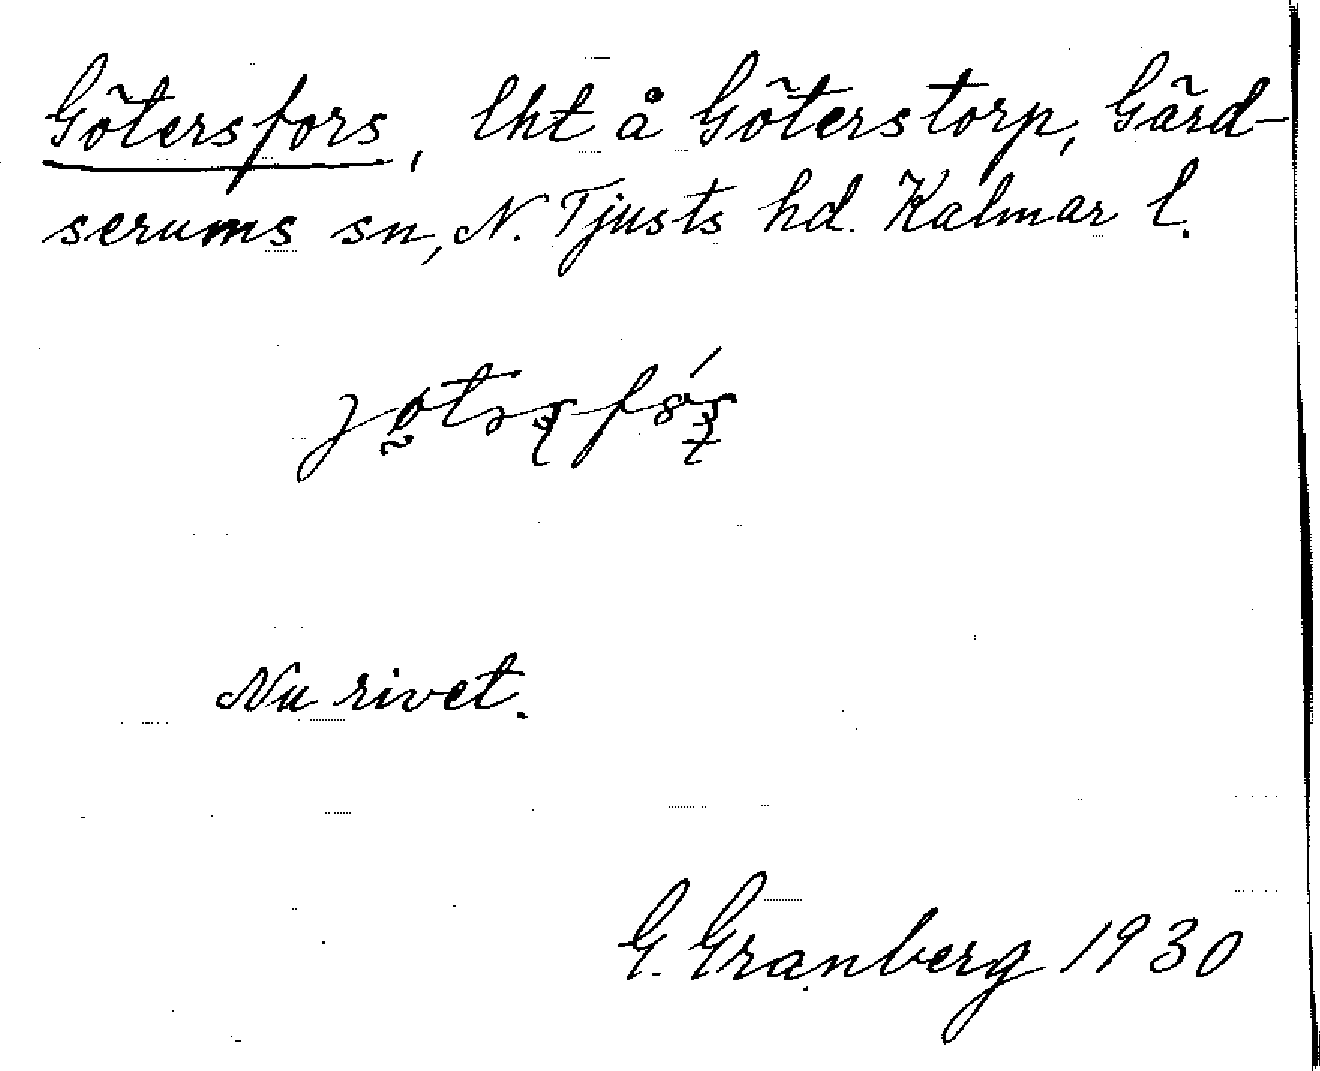 Götersfors, lht å Göterstorp, Gärd-
serums sn, N. Tjusts hd. Kalmar l.
Nu rivet.
G. Granberg 1930